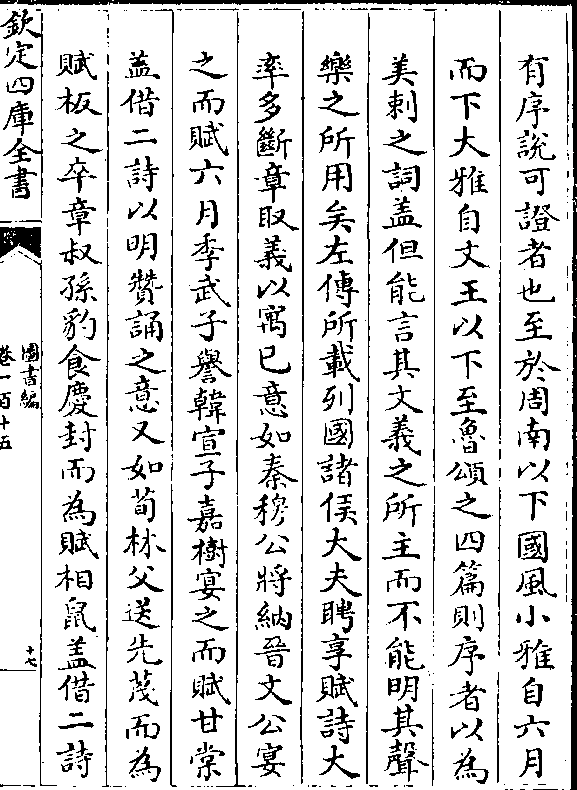 有序說可證者也至於周南以下國風小雅自六月
而下大雅自文王以下至魯頌之四篇則序者以為
美刺之詞盖但能言其文義之所主而不能明其聲
樂之所用矣左傳所載列國諸侯大夫聘享賦詩大
率多斷章取義以寓已意如秦穆公將納晉文公宴
之而賦六月季武子譽韓宣子嘉樹宴之而賦甘棠
盖借二詩以明贊誦之意又如荀林父送先蔑而為
賦板之卒章叔孫豹食慶封而為賦相鼠盖借二詩
欽定四庫全書
圖書編
卷一百十五
十七